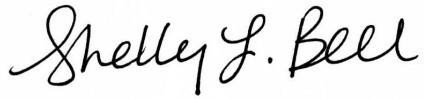 Shelly L. Bell